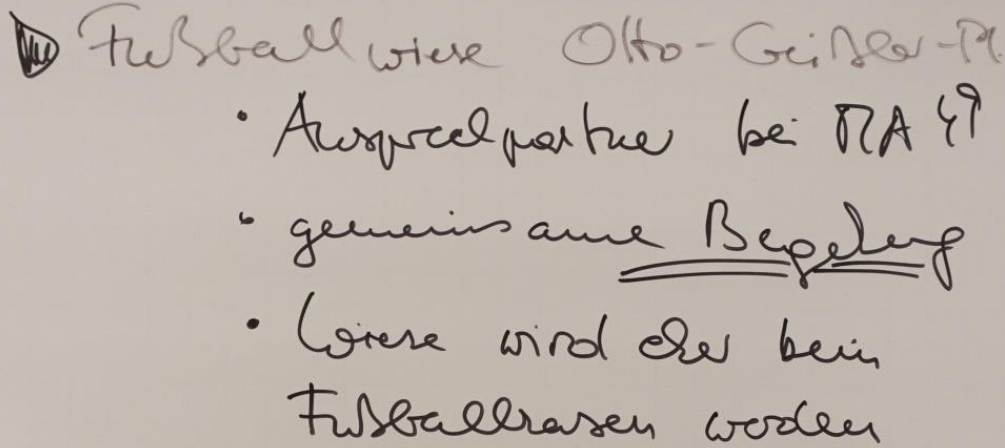 Fußballwiese Otto-Geißler-Pl
• Ansprechpartner bei MA 49
• gemeinsame Begehung
• Wiese wird eher kein
Fußballrasen werden